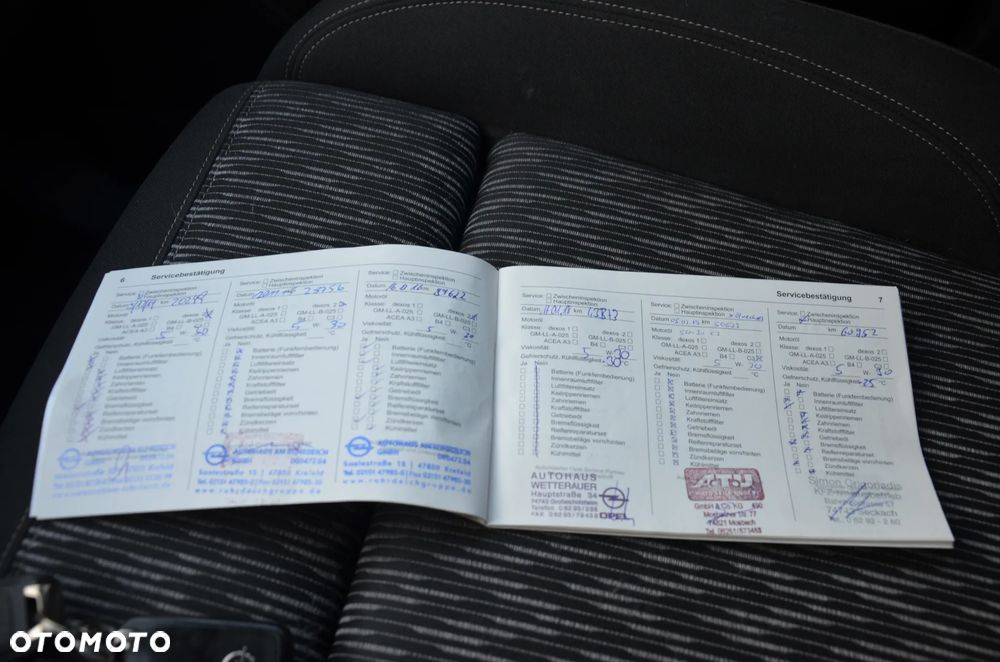 6 Servicebestätigung
Service: Zwischeninspektion
Hauptinspektion
Datum km 20299
Motoröl
Klasse: dexos 1 dexos 2
GM-LL-A-025 GM-LL-B-025
ACEA A3 B4 C3
Viskosität: 5 W- 30
Gefrierschutz, Kühlflüssigkeit
Ja Nein
Batterie (Funkfernbedienung)
Innenraumluftfilter
Luftfiltereinsatz
Keilrippenriemen
Zahnriemen
Kraftstofffilter
Getriebeöl
Bremsflüssigkeit
Reifenreparaturset
Bremsbeläge vorn/hinten
Zündkerzen
Kühlmittel
Service: Zwischeninspektion
Hauptinspektion
Datum km
Motoröl
Klasse: dexos 1 dexos 2
GM-LL-A-025 GM-LL-B-025
ACEA A3 B4 C3
Viskosität: 5 W- 30
Gefrierschutz, Kühlflüssigkeit °C
Ja Nein
Batterie (Funkfernbedienung)
Innenraumluftfilter
Luftfiltereinsatz
Keilrippenriemen
Zahnriemen
Kraftstofffilter
Getriebeöl
Bremsflüssigkeit
Reifenreparaturset
Bremsbeläge vorn/hinten
Zündkerzen
Kühlmittel
GMBH
Saalestraße 15 | 47800 Krefeld
www.ruhrdeichgruppe.de
Service: Zwischeninspektion
Hauptinspektion
Datum km
Motoröl
Klasse: dexos 1 dexos 2
GM-LL-A-025 GM-LL-B-025
ACEA A3 B4 C3
Viskosität: 5 W- 30
Gefrierschutz, Kühlflüssigkeit °C
Ja Nein
Batterie (Funkfernbedienung)
Innenraumluftfilter
Luftfiltereinsatz
Keilrippenriemen
Zahnriemen
Kraftstofffilter
Getriebeöl
Bremsflüssigkeit
Reifenreparaturset
Bremsbeläge vorn/hinten
Zündkerzen
Kühlmittel
AUTOHAUS AM RUHRDEICH
GMBH
Saalestraße 15 | 47800 Krefeld
www.ruhrdeichgruppe.de
Servicebestätigung 7
Service: Zwischeninspektion
Hauptinspektion
Datum km
Motoröl
Klasse: dexos 1 dexos 2
GM-LL-A-025 GM-LL-B-025
ACEA A3 B4 C3
Viskosität: 5 W- 30
Gefrierschutz, Kühlflüssigkeit -30 °C
Ja Nein
Batterie (Funkfernbedienung)
Innenraumluftfilter
Luftfiltereinsatz
Keilrippenriemen
Zahnriemen
Kraftstofffilter
Getriebeöl
Bremsflüssigkeit
Reifenreparaturset
Bremsbeläge vorn/hinten
Zündkerzen
Kühlmittel
AUTOHAUS
WETTERAUER
Hauptstraße 34
OPEL
Service: Zwischeninspektion
Hauptinspektion
Datum km
Motoröl
Klasse: dexos 1 dexos 2
GM-LL-A-025 GM-LL-B-025
ACEA A3 B4 C3
Viskosität: 5 W- 30
Gefrierschutz, Kühlflüssigkeit °C
Ja Nein
Batterie (Funkfernbedienung)
Innenraumluftfilter
Luftfiltereinsatz
Keilrippenriemen
Zahnriemen
Kraftstofffilter
Getriebeöl
Bremsflüssigkeit
Reifenreparaturset
Bremsbeläge vorn/hinten
Zündkerzen
Kühlmittel
A.T.J
GmbH & Co. KG
Mosbacher Str. 77
74821 Mosbach
Tel. 06261/673463
Service: Zwischeninspektion
Hauptinspektion
Datum km 60952
Motoröl
Klasse: dexos 1 dexos 2
GM-LL-A-025 GM-LL-B-025
ACEA A3 B4 C3
Viskosität: 5 W- 30
Gefrierschutz, Kühlflüssigkeit -25 °C
Ja Nein
Batterie (Funkfernbedienung)
Innenraumluftfilter
Luftfiltereinsatz
Keilrippenriemen
Zahnriemen
Kraftstofffilter
Getriebeöl
Bremsflüssigkeit
Reifenreparaturset
Bremsbeläge vorn/hinten
Zündkerzen
Kühlmittel
Simon
74743 Seckach
OTOMOTO